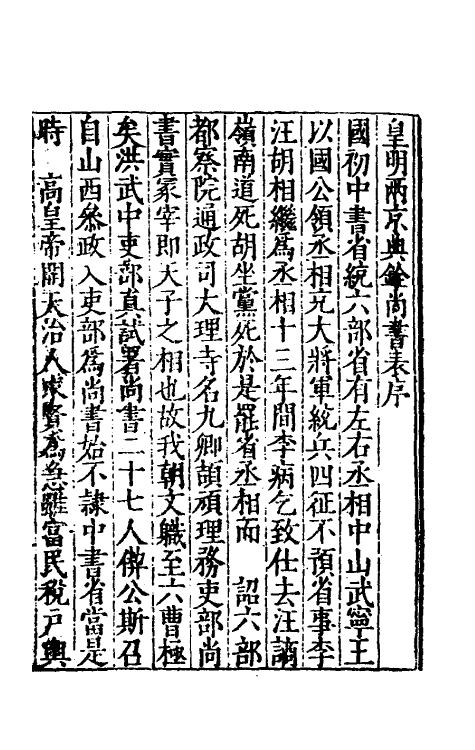 皇明兩京典銓尚書表序
國初中書省統六部省有左右丞相中山武寧王
以國公領丞相兄大將軍統兵四征不預省事李
汪胡相繼爲丞相十三年間李病乞致仕去汪謫
嶺南道死胡坐黨死於是罷省丞相而　詔六部
都察院通政司大理寺名九卿頡頏理務吏部尚
書實冢宰即天子之相也故我朝文職至六曹極
矣洪武中吏部真試署尚書二十七人偰公斯召
自山西參政入吏部爲尚書始不隸中書省當是
時　高皇帝開大治人求賢爲急雖富民稅戶輿